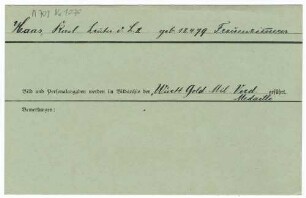 M 707 Nr. 1030
Haas, Karl Leutn. d. L. 2 geb. 12.4.79
Bild und Personalangaben werden im Bildarchiv der Württ. Gold. Mil. Verd. Medaille geführt.
Bemerkungen: